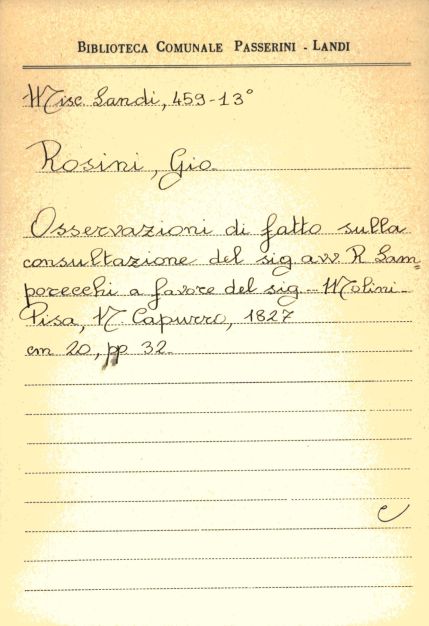 BIBLIOTECA COMUNALE PASSERINI - LANDI
Misc. Landi, 459-13°
Rosini, Gio.
Osservazioni di fatto sulla
consultazione del sig. avv. R. Lam=
porecchi a favore del sig. Molini.
Pisa, N. Capurro, 1827
cm 20, pp 32.
C